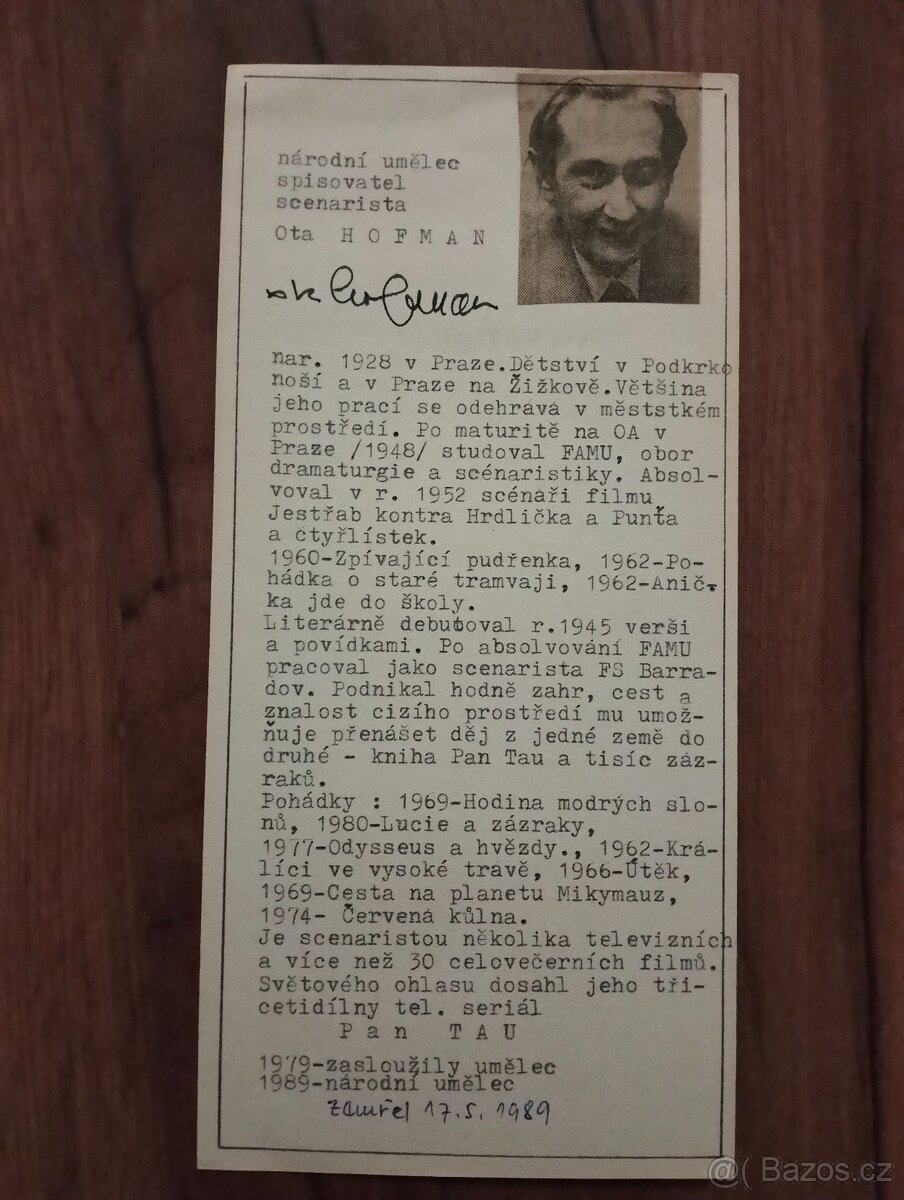 národní umělec
spisovatel
scenarista
Ota H O F M A N
nar. 1928 v Praze.Dětství v Podkrko
noší a v Praze na Žižkově.Většina
jeho prací se odehrává v měststkém
prostředí. Po maturitě na OA v
Praze /1948/ studoval FAMU, obor
dramaturgie a scénaristiky. Absol-
voval v r. 1952 scénáři filmu
Jestřab kontra Hrdlička a Punťa
a čtyřlístek.
1960-Zpívající pudřenka, 1962-Po-
hádka o staré tramvaji, 1962-Anič-
ka jde do školy.
Literárně debutoval r.1945 verši
a povídkami. Po absolvování FAMU
pracoval jako scenarista FS Barra-
dov. Podnikal hodně zahr, cest a
znalost cizího prostředí mu umož-
ňuje přenášet děj z jedné země do
druhé - kniha Pan Tau a tisíc záz-
raků.
Pohádky : 1969-Hodina modrých slo-
nů, 1980-Lucie a zázraky,
1977-Odysseus a hvězdy., 1962-Krá-
líci ve vysoké travě, 1966-Útěk,
1969-Cesta na planetu Mikymauz,
1974- Červená kůlna.
Je scenaristou několika televizních
a více než 30 celovečerních filmů.
Světového ohlasu dosáhl jeho tři-
cetidílny tel. seriál
P a n T A U
1979-zasloužily umělec
1989-národní umělec
zamřel 17.5. 1989
@( Bazos.cz